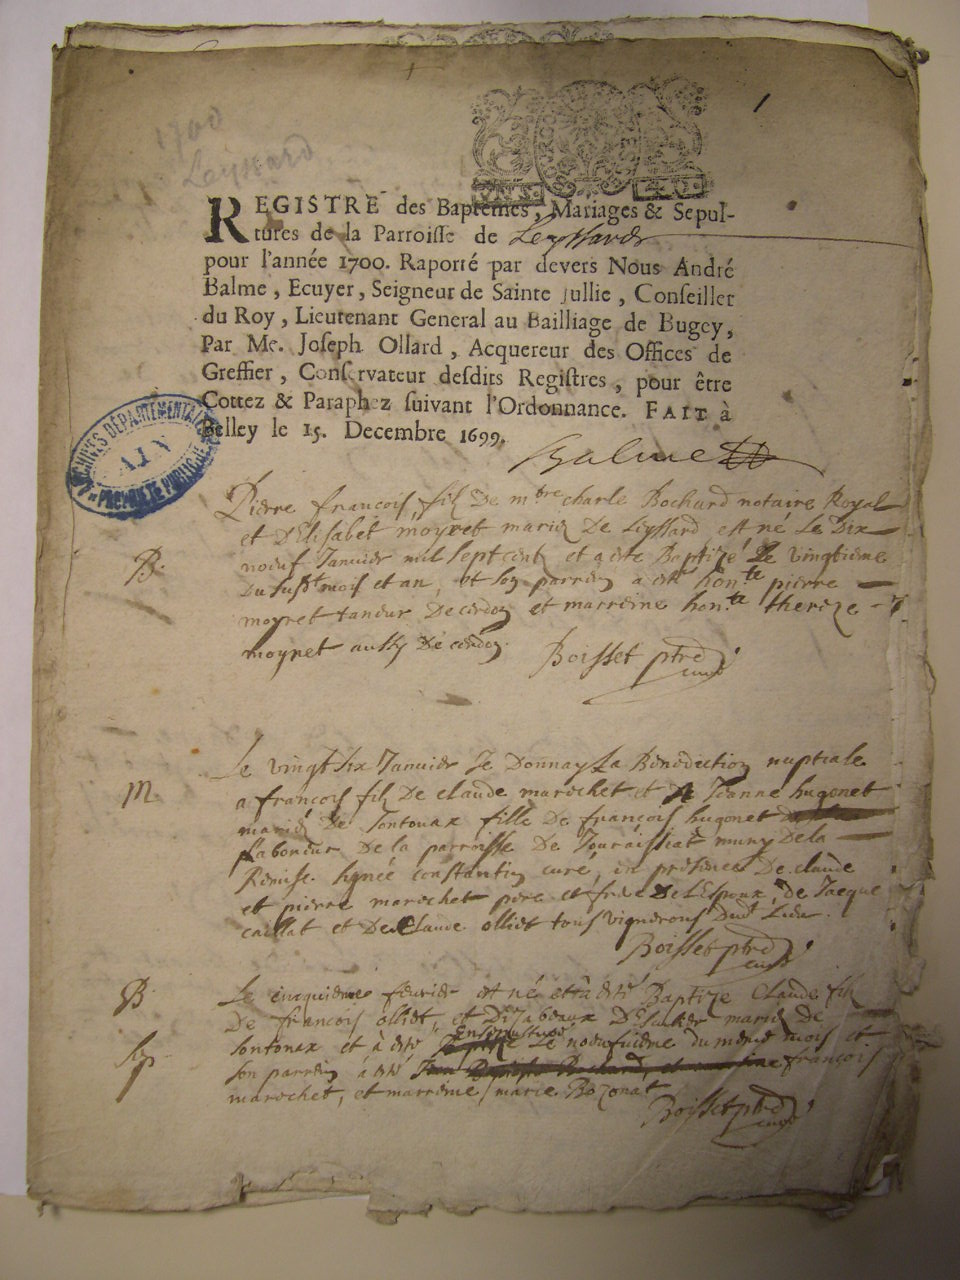 1
1700
Leyssard
REGISTRE des Baptêmes, Mariages & Sepul-
tures de la Parroisse de Leyssard
pour l'année 1700. Raporté par devers Nous André
Balme, Ecuyer, Seigneur de Sainte Jullie, Conseiller
du Roy, Lieutenant General au Bailliage de Bugey,
Par Me. Joseph Ollard, Acquereur des Offices de
Greffier, Conservateur desdits Registres, pour être
Cottez & Paraphez suivant l'Ordonnance. FAIT à
Belley le 15. Decembre 1699.
Balme
ARCHIVES DÉPARTEMENTALES
AIN
PROPRIÉTÉ PUBLIQUE
Pierre francois fils De mbre charle Bochard notaire Royal
et D'Elisabet moyret mariez De Leyssard est né Le Dix
B. noeuf Januier mil sept cent et a esté Baptizé Le vingtieme
Du susdt mois et an, et son parrein a esté honte pierre
moyret tandur De cerdon et marreine honte thereze
moyret aussy De cerdon. Boisset ptre
curé
Le vingt six Januier Je Donnay La Benediction nuptiale
M a francois fils De claude marochet et Jeanne hugonet
mariez De Sontonax fille De francois hugonet
Labondur De la parroisse De muny De la
Remise signée constantin curé, in presence De claude
et pierre marochet pere et frere De L'Espoux, De Jacque
caillat et De Claude olliet tous vignerons Dudt Lieu.
Boisset ptre
curé
B Le cinquieme feurier est né et à esté Baptize Claude fils
De francois olliet, et D'Isabeaux mariez De
enseputuré
Sontonax et à esté Le noeufuieme du meme mois et
Sep son parrein à esté francois
marochet, et marreine marie Bozonat
Boisset ptre
curé